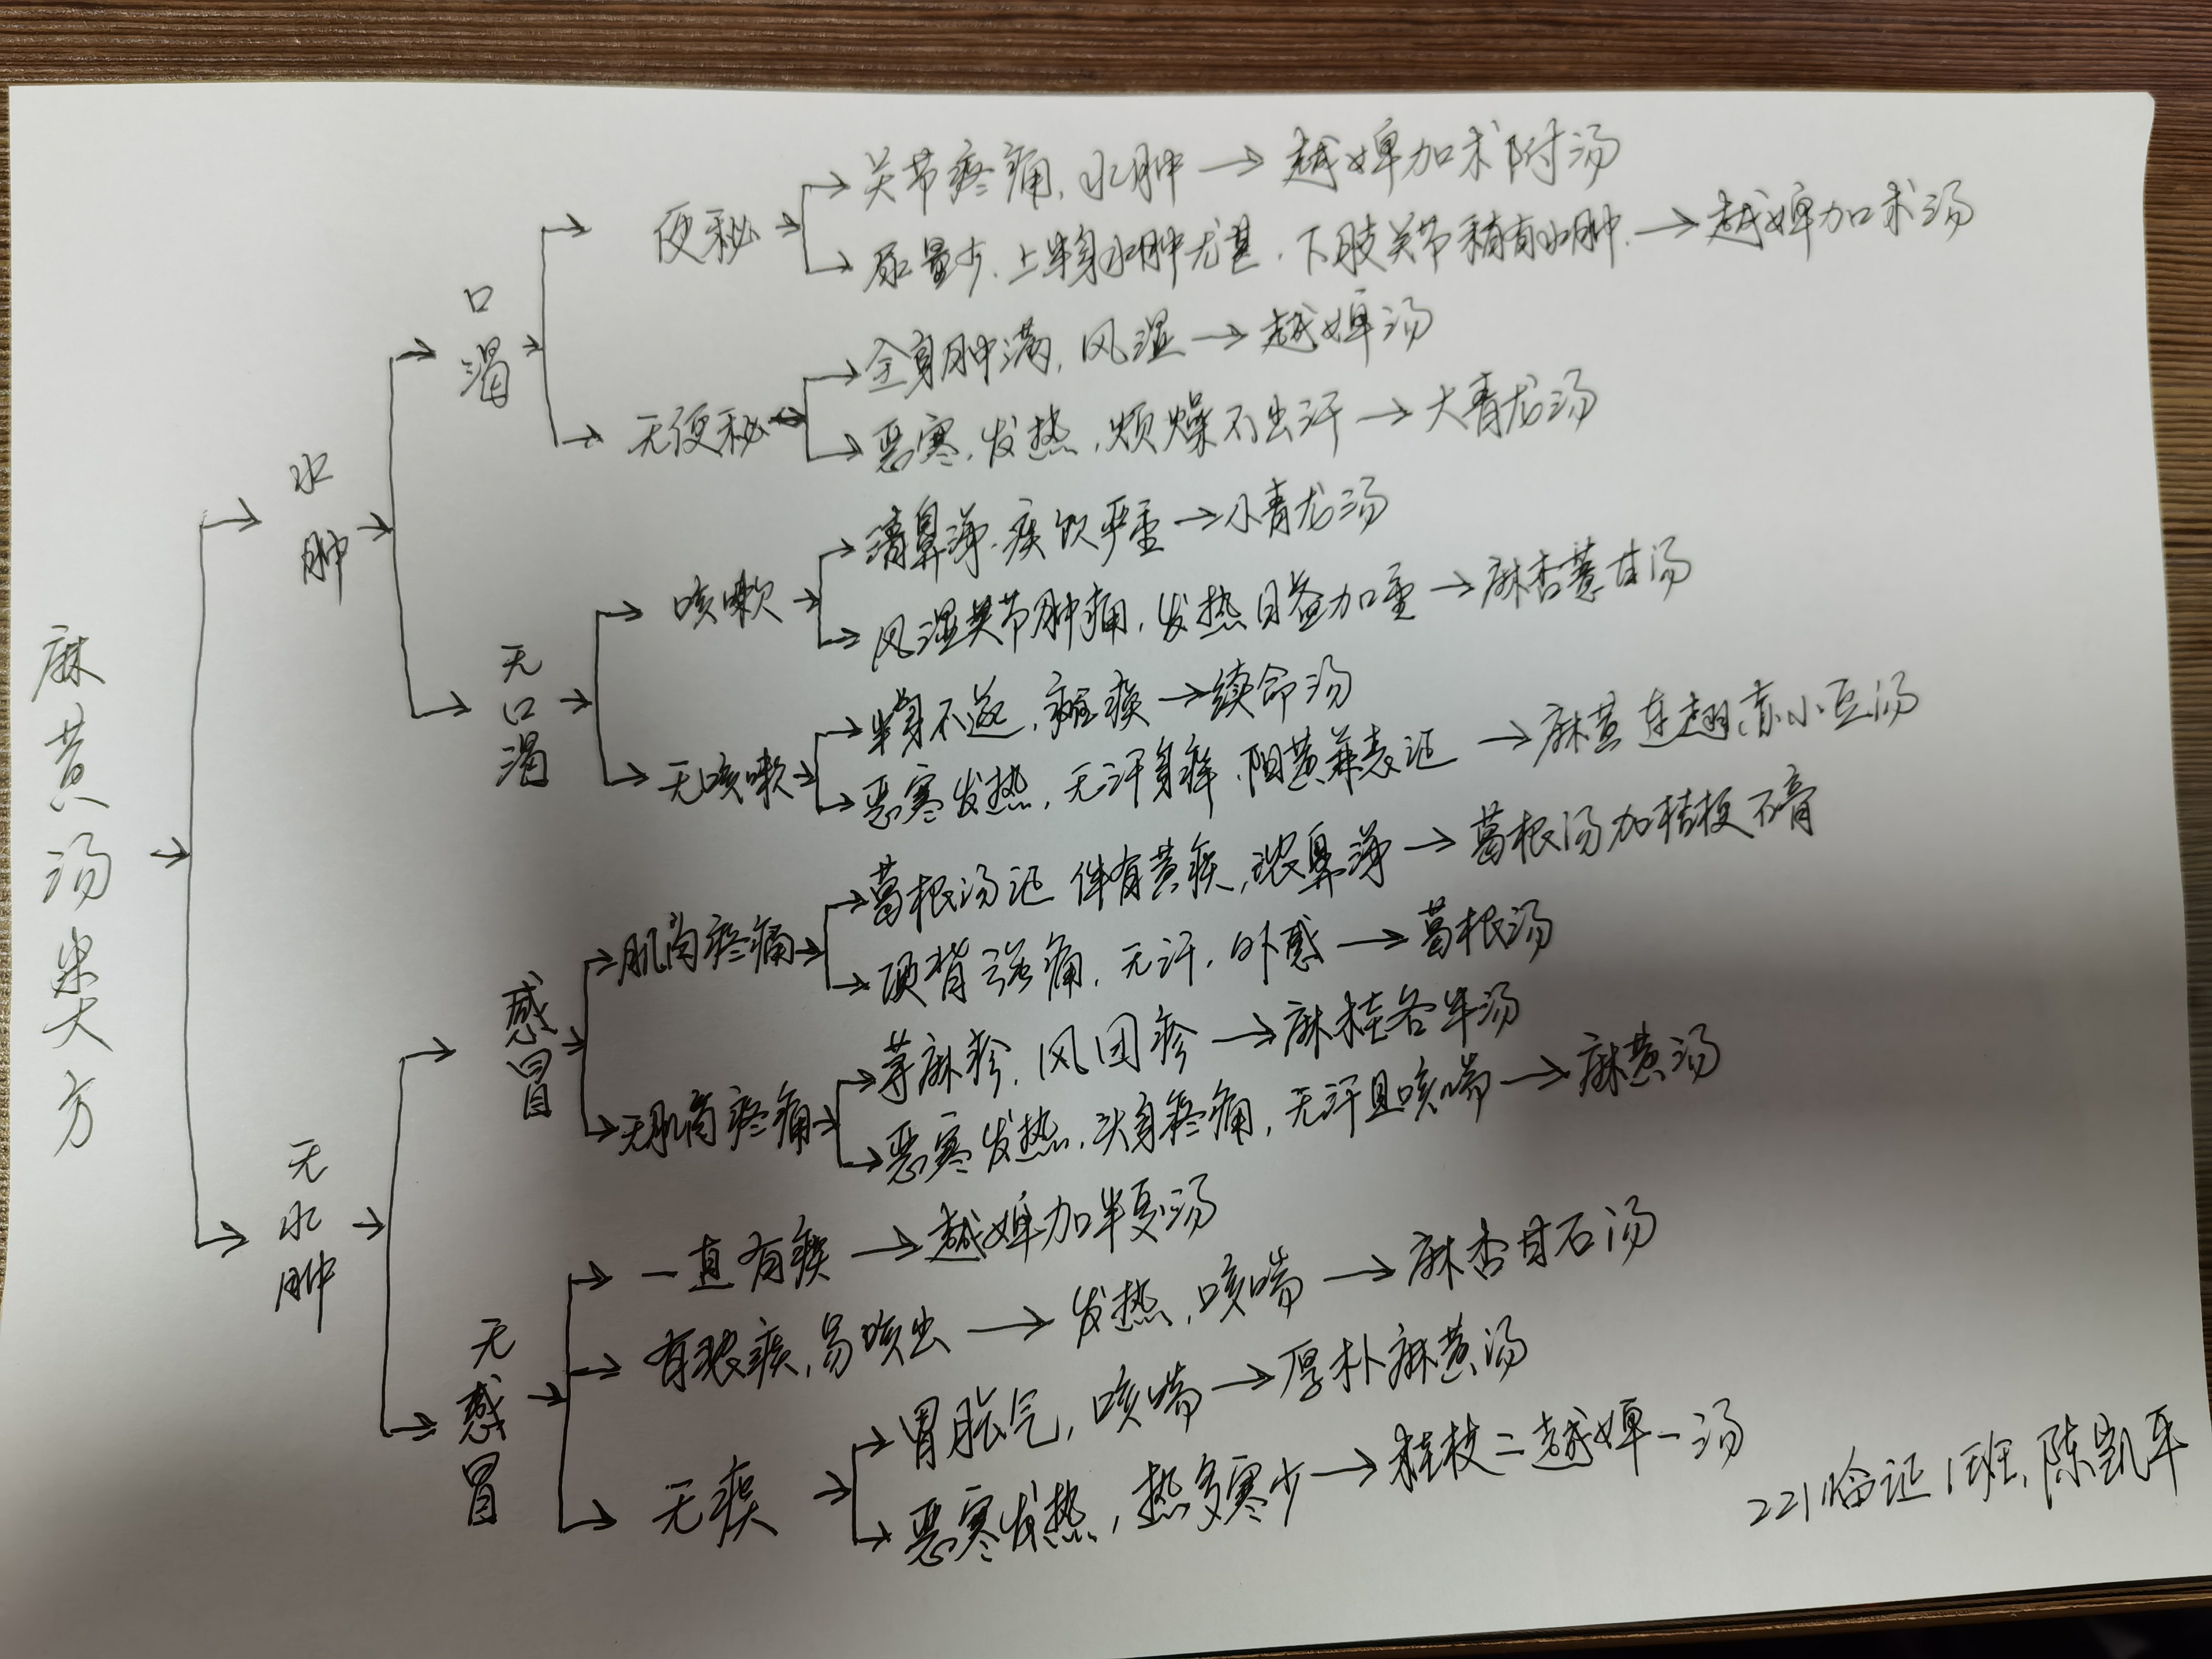 麻黄汤类方
水肿
口渴
便秘
关节疼痛, 水肿 → 越婢加术附汤
尿量少, 上半身水肿尤甚, 下肢关节稍有水肿 → 越婢加术汤
无便秘
全身肿满, 风湿 → 越婢汤
恶寒, 发热, 烦燥不出汗 → 大青龙汤
无口渴
咳嗽
清鼻涕, 痰饮严重 → 小青龙汤
风湿关节肿痛, 发热日益加重 → 麻杏薏甘汤
无咳嗽
半身不遂, → 续命汤
恶寒发热, 无汗身痒, 阳黄兼表证 → 麻黄连翘赤小豆汤
无水肿
感冒
肌肉疼痛
葛根汤证 伴有黄痰, 浓鼻涕 → 葛根汤加桔梗石膏
项背强痛, 无汗, 外感 → 葛根汤
无肌肉疼痛
荨麻疹, 风团疹 → 麻桂各半汤
恶寒发热, 头身疼痛, 无汗且咳喘 → 麻黄汤
无感冒
一直有痰 → 越婢加半夏汤
有浓痰, 易咳出 → 发热, 咳喘 → 麻杏甘石汤
无痰
胃胀气, 咳喘 → 厚朴麻黄汤
恶寒发热, 热多寒少 → 桂枝二越婢一汤
221临证1班, 陈凯平